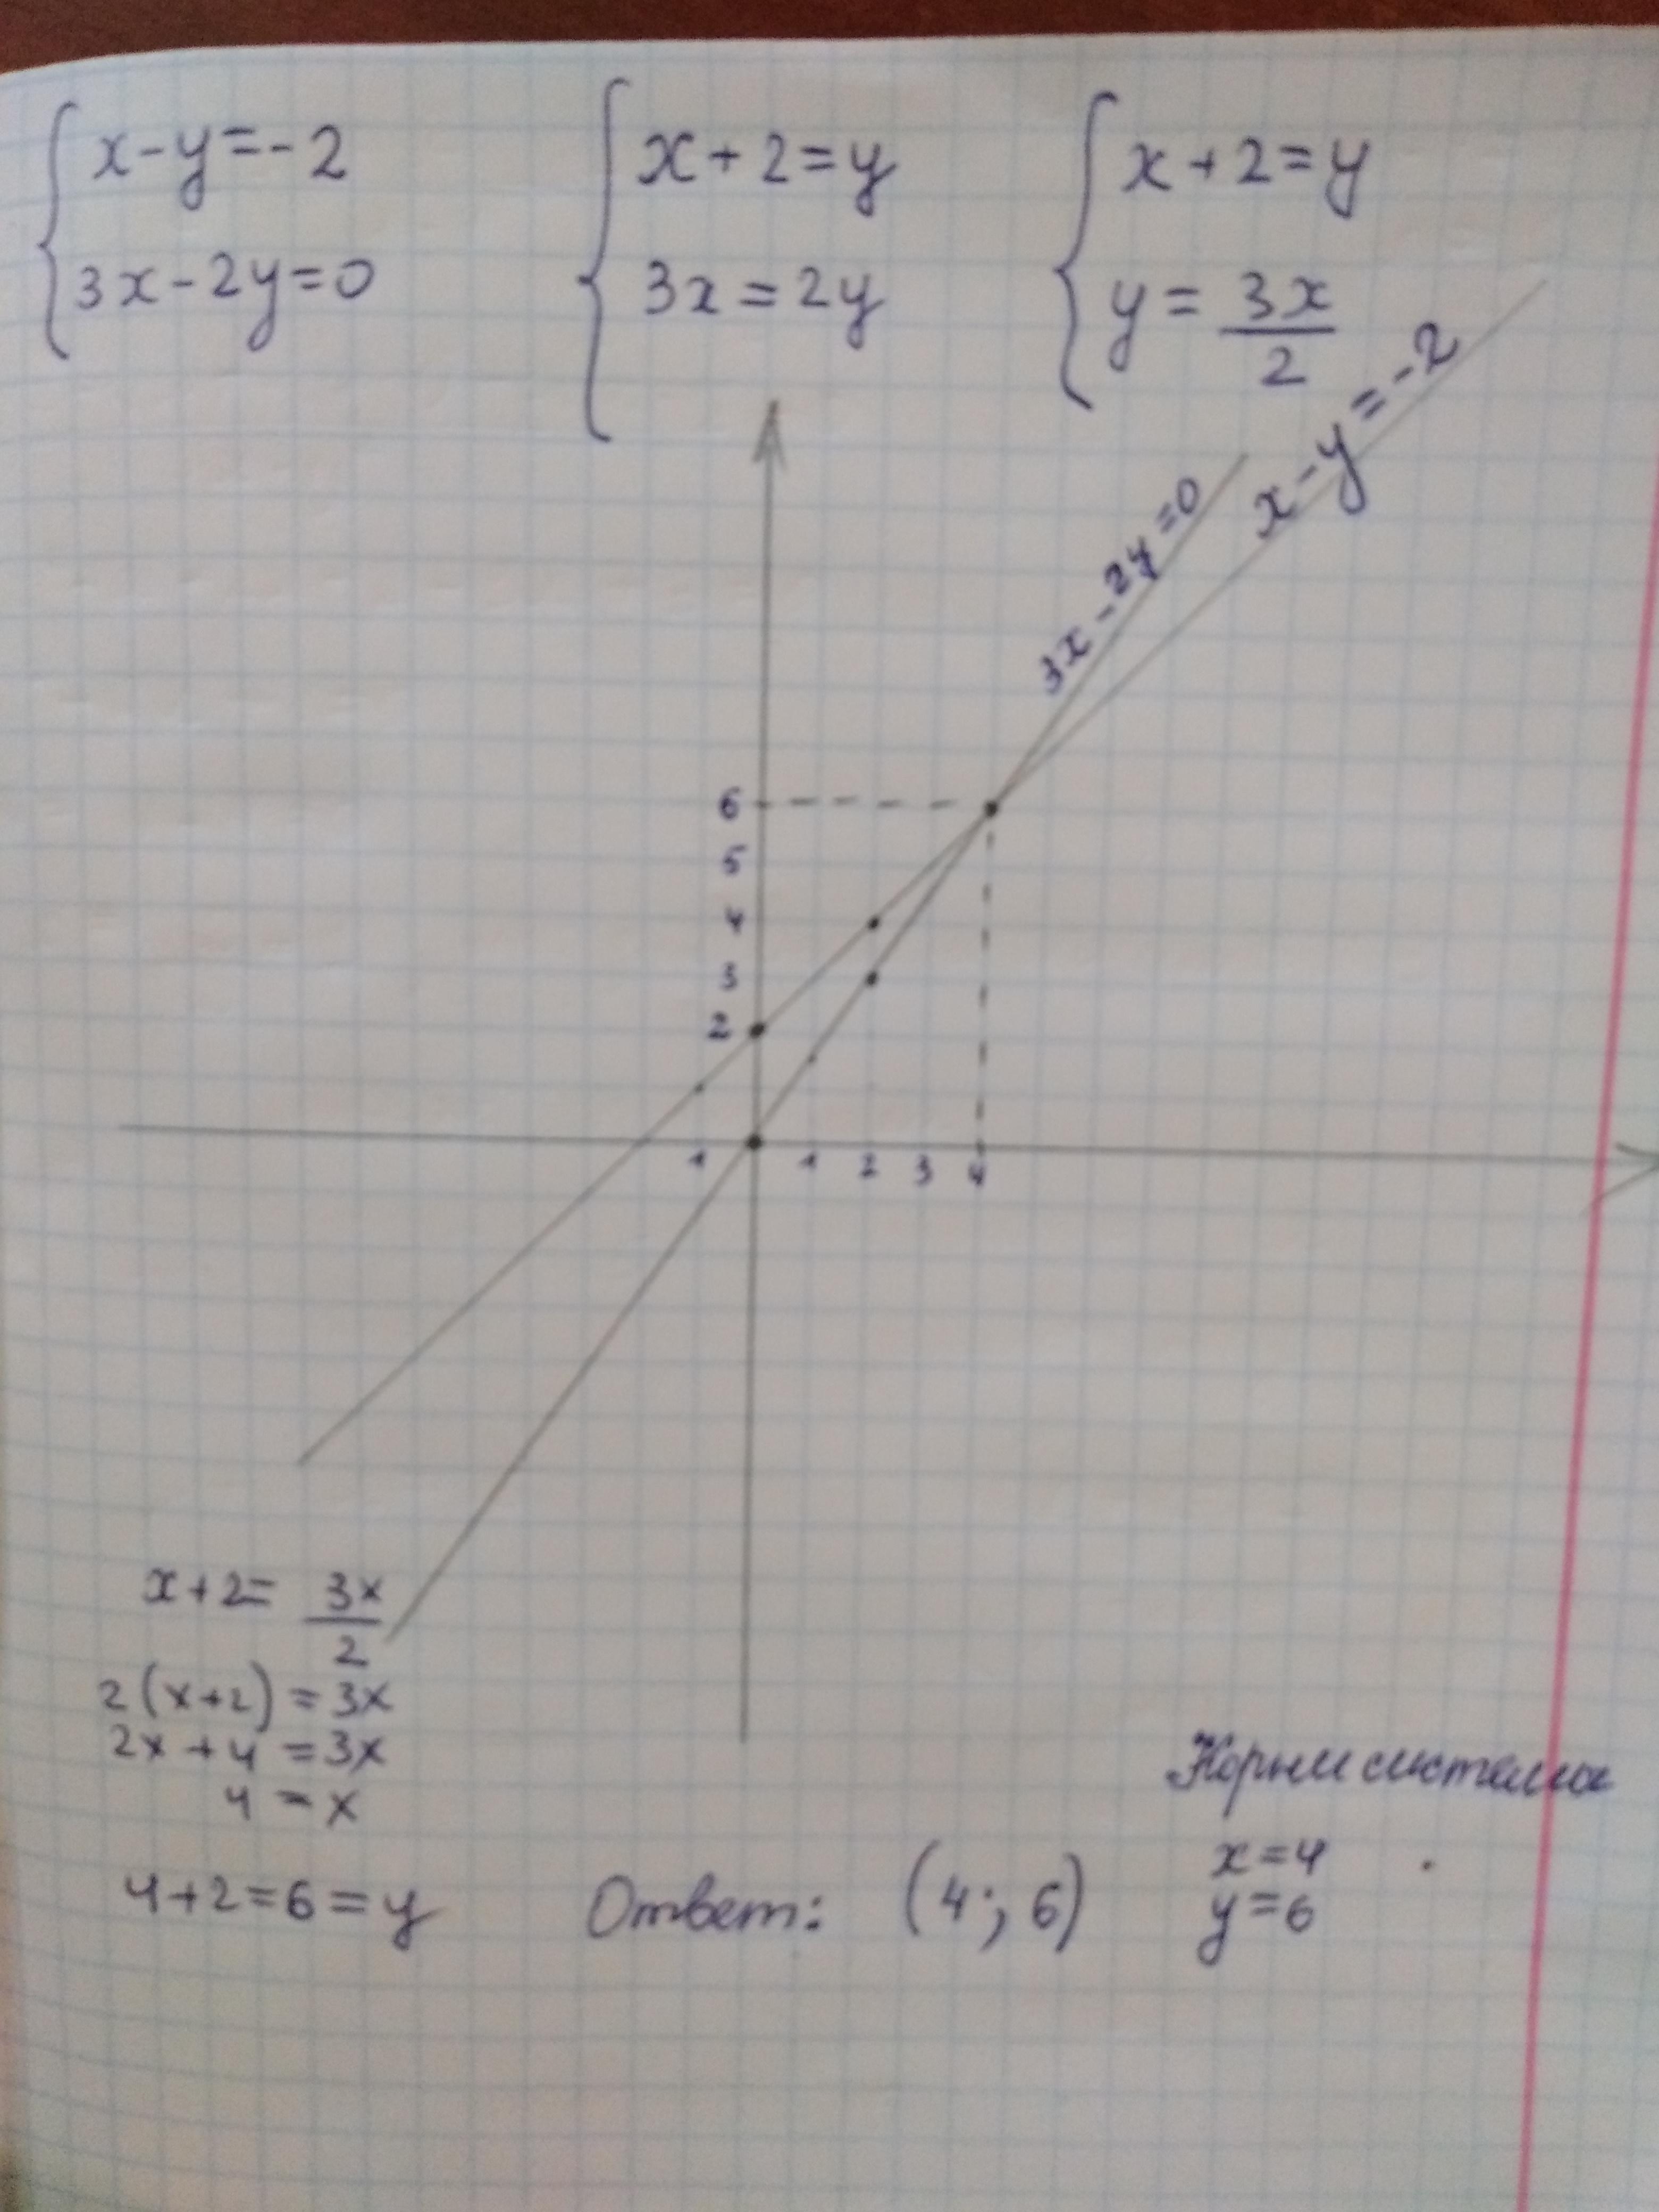 x-y=-2
3x-2y=0
x+2=y
3x=2y
x+2=y
y=3x/2
3x-2y=0
x-y=-2
6
5
4
3
2
1 1 2 3 4
x+2=3x/2
2(x+2)=3x
2x+4=3x
4=x
4+2=6=y
Ответ: (4; 6)
Корни системы
x=4
y=6